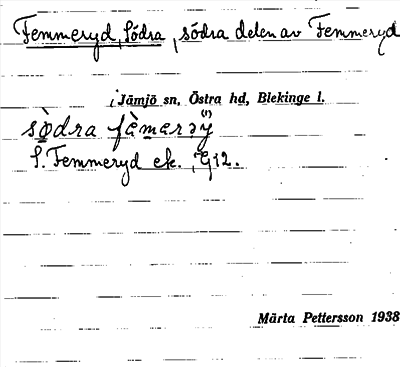 Femmeryd, Södra, södra delen av Femmeryd
i Jämjö sn, Östra hd, Blekinge l.
sò̱dra fὲmarəy (!)
S. Femmeryd ek. G12.
Märta Pettersson 1938